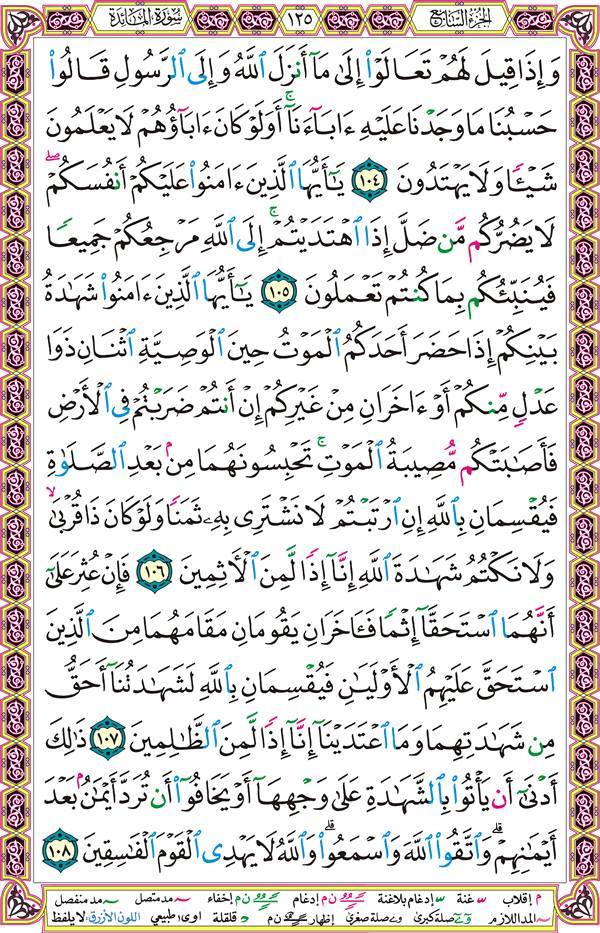 الجزء السابع
١٢٥
سورة المائدة
وَإِذَا قِيلَ لَهُمۡ تَعَالَوۡاْ إِلَىٰ مَآ أَنزَلَ ٱللَّهُ وَإِلَى ٱلرَّسُولِ قَالُواْ
حَسۡبُنَا مَا وَجَدۡنَا عَلَيۡهِ ءَابَآءَنَآۚ أَوَلَوۡ كَانَ ءَابَآؤُهُمۡ لَا يَعۡلَمُونَ
شَيۡـٔٗا وَلَا يَهۡتَدُونَ ١٠٤ يَٰٓأَيُّهَا ٱلَّذِينَ ءَامَنُواْ عَلَيۡكُمۡ أَنفُسَكُمۡۖ
لَا يَضُرُّكُم مَّن ضَلَّ إِذَا ٱهۡتَدَيۡتُمۡۚ إِلَى ٱللَّهِ مَرۡجِعُكُمۡ جَمِيعٗا
فَيُنَبِّئُكُم بِمَا كُنتُمۡ تَعۡمَلُونَ ١٠٥ يَٰٓأَيُّهَا ٱلَّذِينَ ءَامَنُواْ شَهَٰدَةُ
بَيۡنِكُمۡ إِذَا حَضَرَ أَحَدَكُمُ ٱلۡمَوۡتُ حِينَ ٱلۡوَصِيَّةِ ٱثۡنَانِ ذَوَا
عَدۡلٖ مِّنكُمۡ أَوۡ ءَاخَرَانِ مِنۡ غَيۡرِكُمۡ إِنۡ أَنتُمۡ ضَرَبۡتُمۡ فِي ٱلۡأَرۡضِ
فَأَصَٰبَتۡكُم مُّصِيبَةُ ٱلۡمَوۡتِۚ تَحۡبِسُونَهُمَا مِنۢ بَعۡدِ ٱلصَّلَوٰةِ
فَيُقۡسِمَانِ بِٱللَّهِ إِنِ ٱرۡتَبۡتُمۡ لَا نَشۡتَرِي بِهِۦ ثَمَنٗا وَلَوۡ كَانَ ذَا قُرۡبَىٰ
وَلَا نَكۡتُمُ شَهَٰدَةَ ٱللَّهِ إِنَّآ إِذٗا لَّمِنَ ٱلۡأٓثِمِينَ ١٠٦ فَإِنۡ عُثِرَ عَلَىٰٓ
أَنَّهُمَا ٱسۡتَحَقَّآ إِثۡمٗا فَـَٔاخَرَانِ يَقُومَانِ مَقَامَهُمَا مِنَ ٱلَّذِينَ
ٱسۡتَحَقَّ عَلَيۡهِمُ ٱلۡأَوۡلَيَٰنِ فَيُقۡسِمَانِ بِٱللَّهِ لَشَهَٰدَتُنَآ أَحَقُّ
مِن شَهَٰدَتِهِمَا وَمَا ٱعۡتَدَيۡنَآ إِنَّآ إِذٗا لَّمِنَ ٱلظَّٰلِمِينَ ١٠٧ ذَٰلِكَ
أَدۡنَىٰٓ أَن يَأۡتُواْ بِٱلشَّهَٰدَةِ عَلَىٰ وَجۡهِهَآ أَوۡ يَخَافُوٓاْ أَن تُرَدَّ أَيۡمَٰنُۢ بَعۡدَ
أَيۡمَٰنِهِمۡۗ وَٱتَّقُواْ ٱللَّهَ وَٱسۡمَعُواْۗ وَٱللَّهُ لَا يَهۡدِي ٱلۡقَوۡمَ ٱلۡفَٰسِقِينَ ١٠٨
م إقلاب غنة إدغام بلاغنة ن م إدغام ن م إخفاء مد متصل مد منفصل
المد اللازم صلة كبرى صلة صغرى إظهار ن م قلقلة اوى، طبيعي اللون الأزرق: لا يلفظ